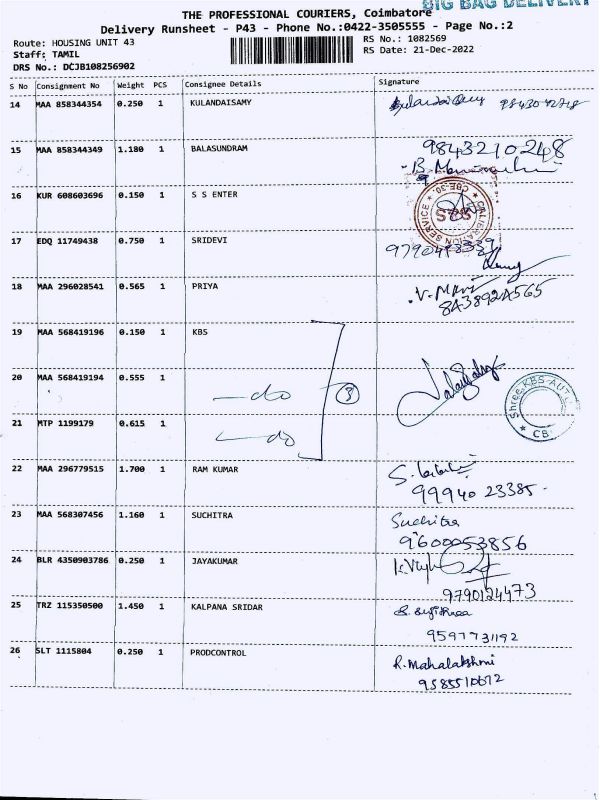 BIG BAG DELIVERY
THE PROFESSIONAL COURIERS, Coimbatore
Delivery Runsheet - P43 - Phone No.:0422-3505555 - Page No.:2
Route: HOUSING UNIT 43
RS No.: 1082569
Staff: TAMIL
RS Date: 21-Dec-2022
DRS No.: DCJB108256902
S No Consignment No Weight PCS Consignee Details Signature
14 MAA 858344354 0.250 1 KULANDAISAMY
15 MAA 858344349 1.180 1 BALASUNDRAM 9843210248
16 KUR 608603696 0.150 1 S S ENTER
CALIBRATION SERVICE * CBE-30. * SRS
17 EDQ 11749438 0.750 1 SRIDEVI
18 MAA 296028541 0.565 1 PRIYA
19 MAA 568419196 0.150 1 KBS
20 MAA 568419194 0.555 1 do 3
Shree KBS-AUT
CB
21 MTP 1199179 0.615 1 do
22 MAA 296779515 1.700 1 RAM KUMAR
99940 23385
23 MAA 568307456 1.160 1 SUCHITRA Suchitra
9600053856
24 BLR 4350903786 0.250 1 JAYAKUMAR
9790124473
25 TRZ 115350500 1.450 1 KALPANA SRIDAR
9597731192
26 SLT 1115804 0.250 1 PRODCONTROL R. Mahalakshmi
9585510672